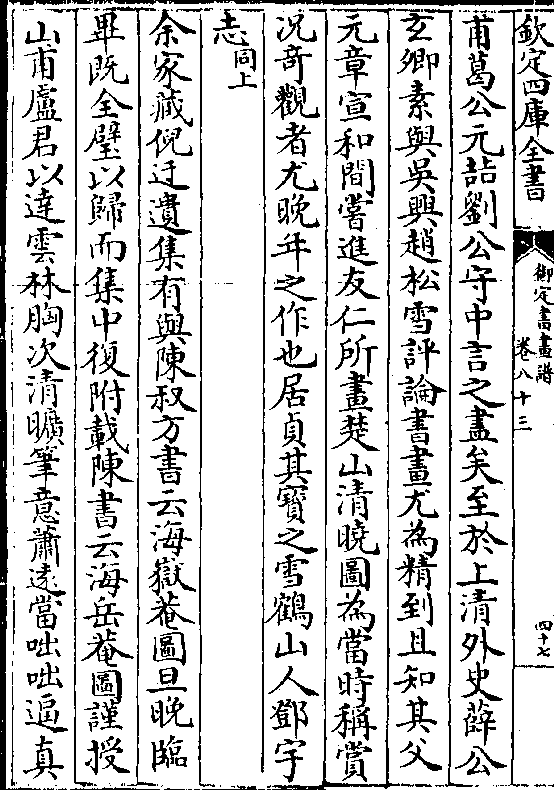 欽定四庫全書
御定書畫譜
卷八十三
四十七
甫葛公元喆劉公守中言之盡矣至於上清外史薛公
玄卿素與吳興趙松雪評論書畫尤為精到且知其父
元章宣和間嘗進友仁所畫楚山清曉圖為當時稱賞
況竒觀者尤晚年之作也居貞其寳之雪鶴山人鄧宇
志同上
余家藏倪迂遺集有與陳叔方書云海嶽菴圖旦晚臨
畢既全璧以歸而集中復附載陳書云海岳菴圖謹授
山甫盧君以達雲林胸次清曠筆意蕭遠當咄咄逼真